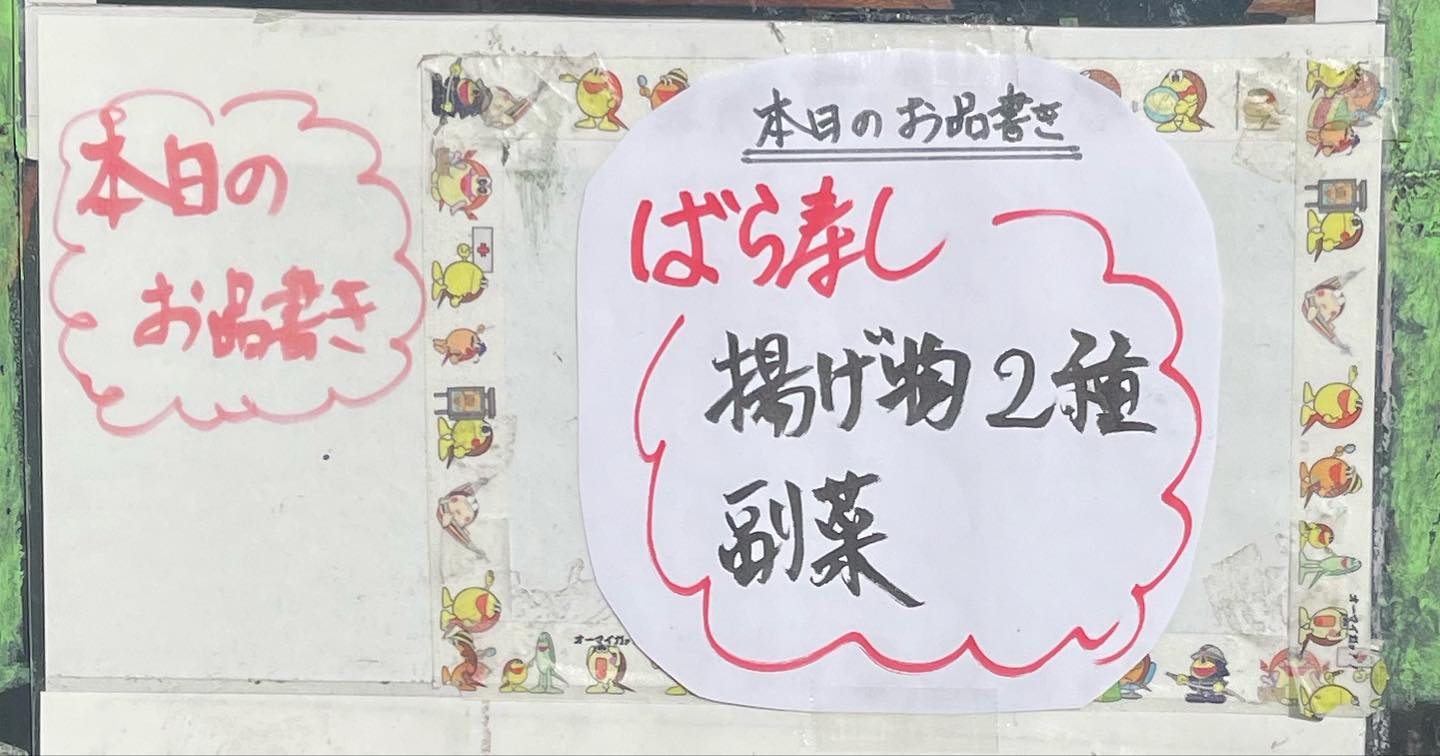 本日の
お品書き
本日のお品書き
ばら寿し
揚げ物2種
副菜
オーマイガッ
オーマイガッ